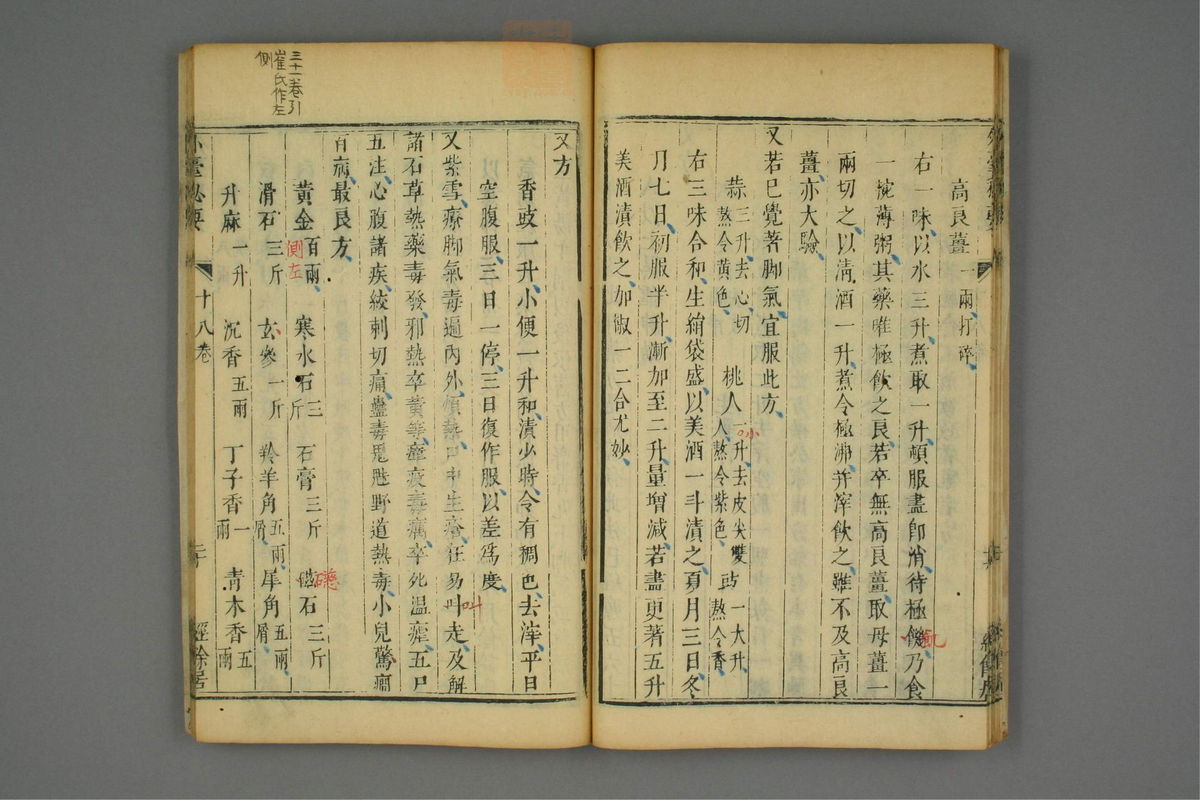 高良薑一兩打碎
右一味以水三升煮取一升頓服盡卽消待極饑乃食
一椀薄粥其藥唯極飲之良若卒無高良薑取母薑一
兩切之以淸酒一升煮令極沸并滓飲之雖不及高良
薑亦大驗
又若巳覺著脚氣宜服此方
蒜三升去心切熬令黃色 桃人一升去皮尖雙人熬令紫色 豉一大升熬令香
小
右三味合和生絹袋盛以美酒一斗漬之夏月三日冬
月七日初服半升漸加至二升量增減若盡更著五升
美酒漬飲之加椒一二合尤妙
又方
香豉一升小便一升和漬少時令有稠色去滓平日
以空腹服三日一停三日復作服以差爲度
又紫雪療脚氣毒遍內外煩熱口中生瘡狂易叫走及解
諸石草熱藥毒發邪熱卒黃等瘴疫毒癘卒死温瘧五尸
五注心腹諸疾絞刺切痛蠱毒鬼魅野道熱毒小兒驚癎
百病最良方
黃金百兩 寒水石三斤 石膏三斤 磁石三斤
滑石三斤 玄參一斤 羚羊角五兩屑 犀角五兩屑
升麻一升 沉香五兩 丁子香一兩 靑木香五兩
外臺必要 十八卷 二十 經餘居
三十一卷引
崔氏作左
側